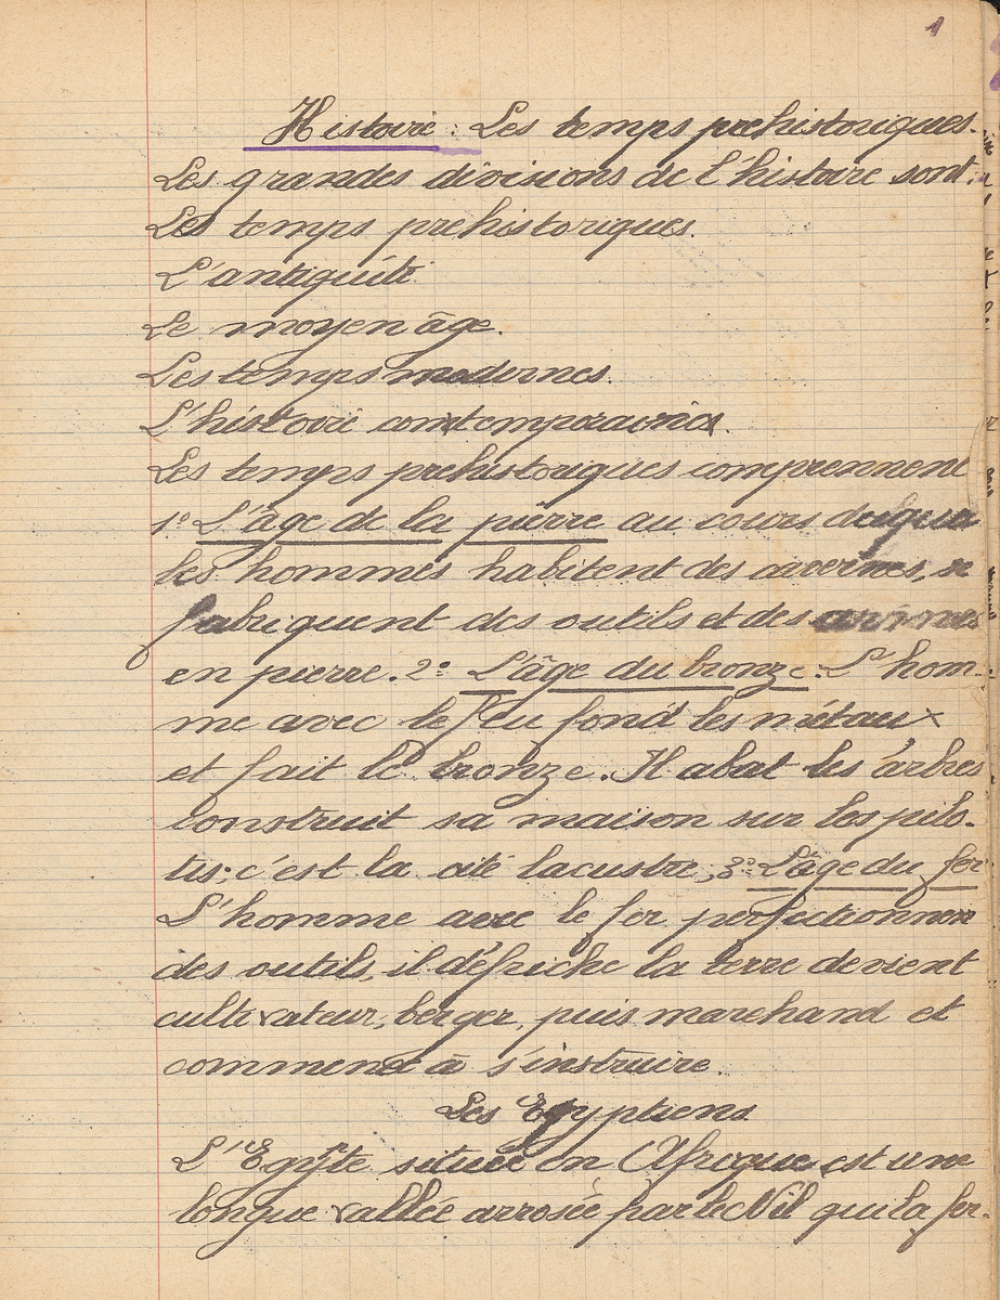 1
Histoire : Les temps prehistoriques.
Les grandes divisions de l'histoire sont:
Les temps prehistoriques.
L'antiquité
Le moyen âge.
Les temps modernes.
L'histoire contemporaine.
Les temps prehistoriques comprennent
1° L'âge de la pierre au cours duquel
les hommes habitent des cavernes, se
fabriquent des outils et des armes
en pierre. 2° L'âge du bronze. L'hom-
me avec le feu fond les métaux
et fait le bronze. Il abat les arbres
construit sa maison sur les pilo-
tis; c'est la cité lacustre, 3° L'âge du fer
L'homme avec le fer perfectionne
des outils, il défriche la terre devient
cultivateur, berger, puis marchand et
commence à s'instruire.
Les Egyptiens
L'Egypte située en Afrique est une
longue vallée arrosée par le Nil qui la fer-